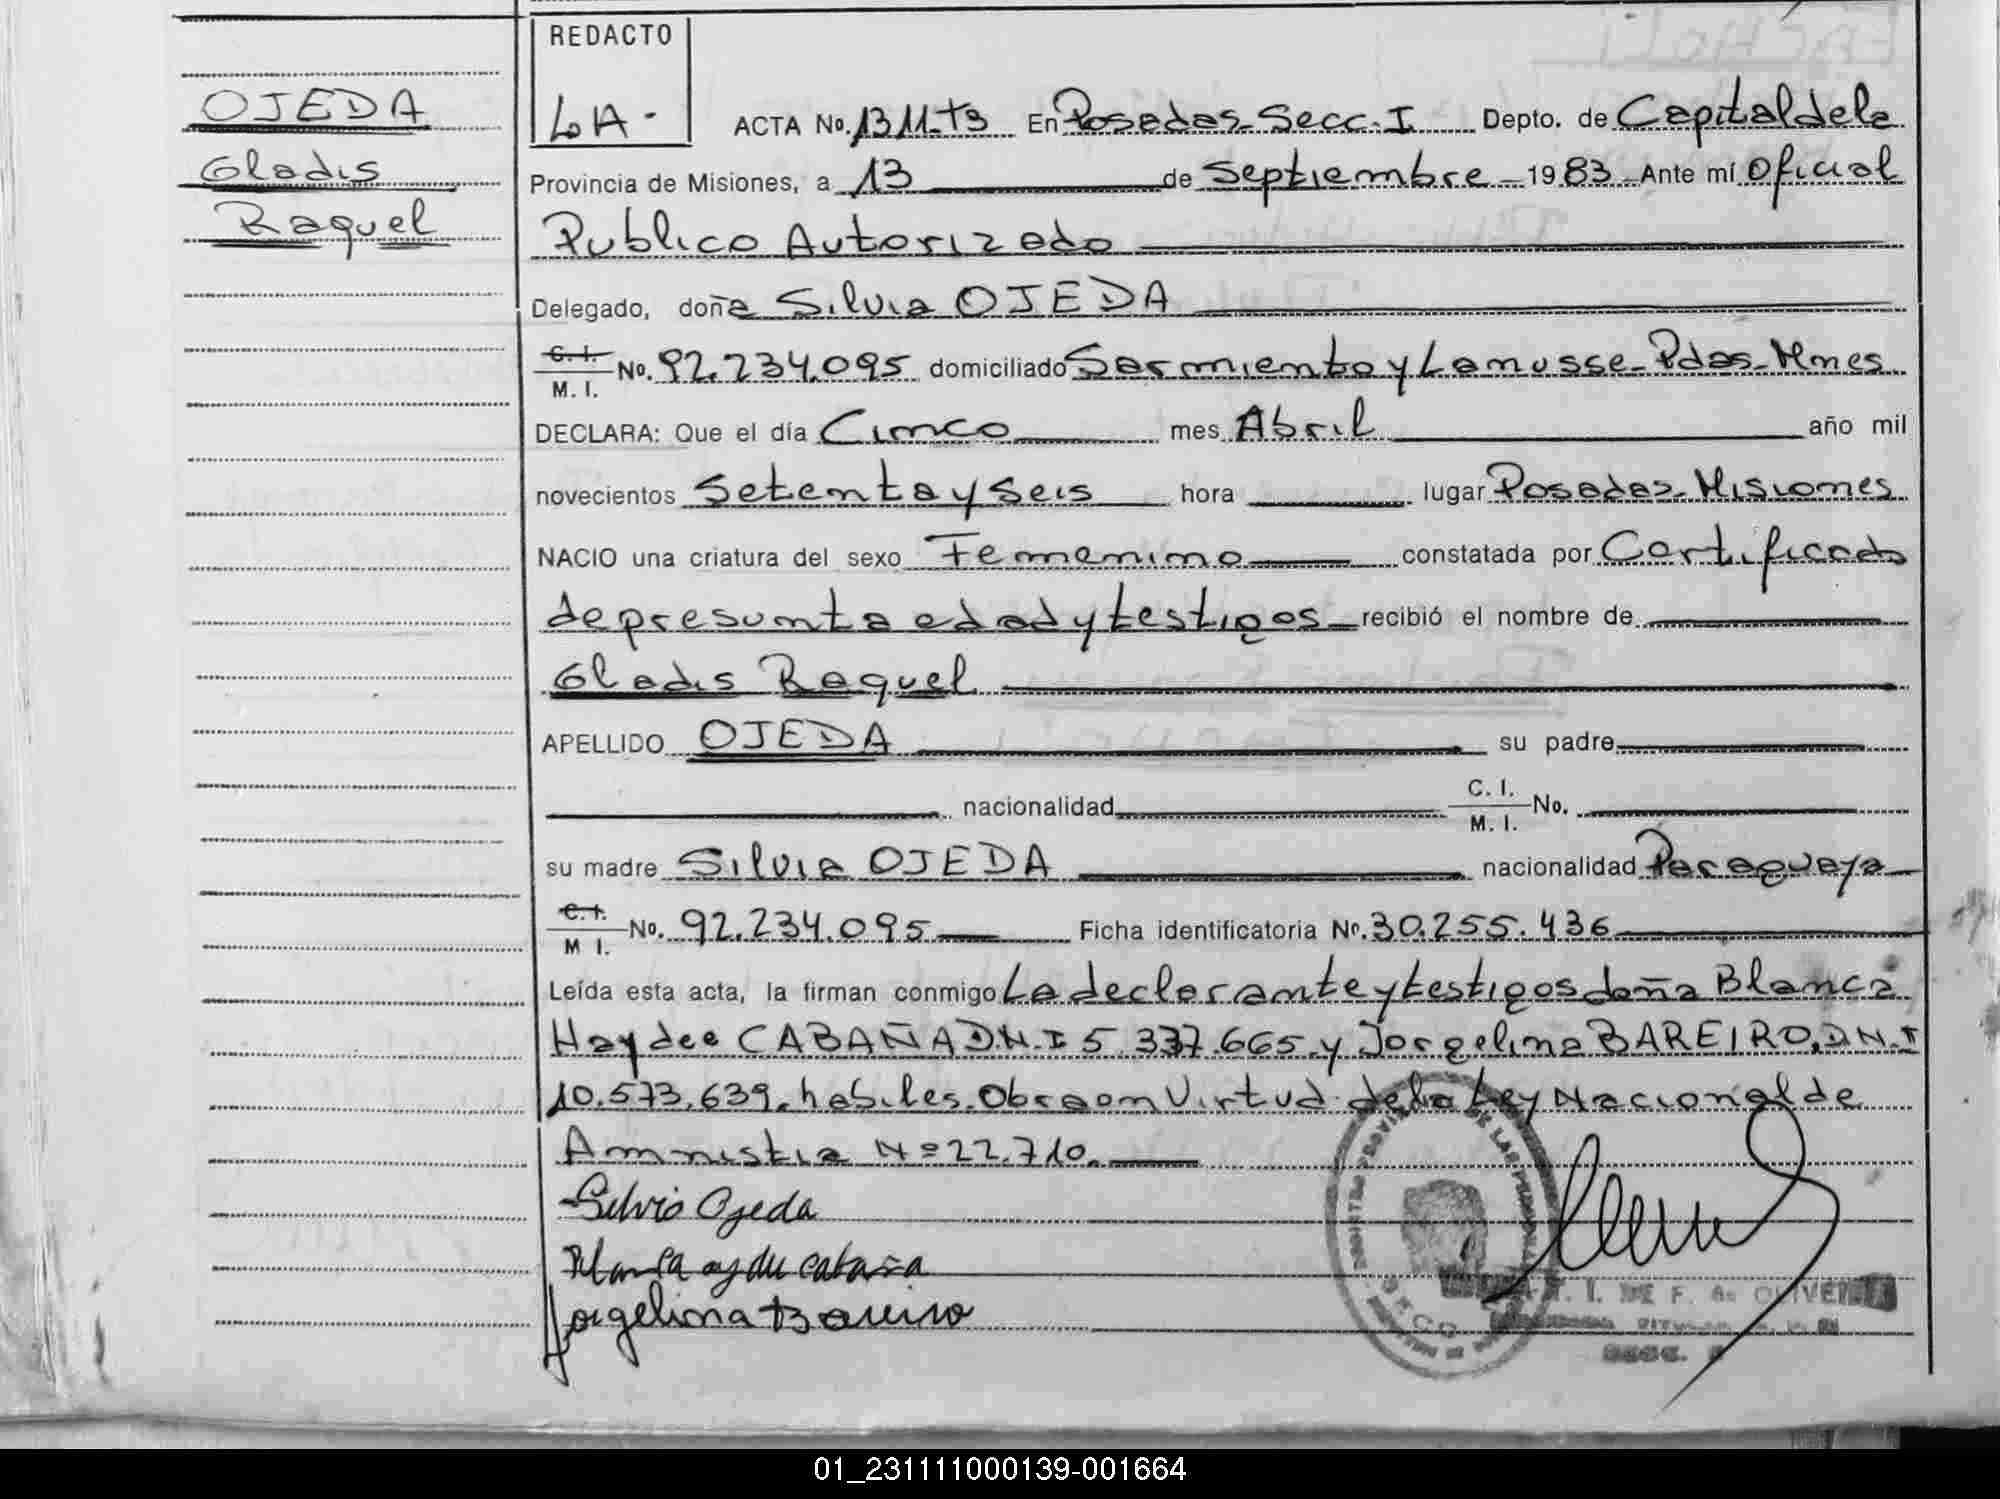 OJEDA
Gladis
Raquel
REDACTO
LA-
ACTA No. 1311-T3 En Posadas-Secc.I Depto. de Capital de la
Provincia de Misiones, a 13 de Septiembre 1983 Ante mí Oficial
Publico Autorizado
Delegado, doña Silvia OJEDA
C.I. M.I. No. 92.234.095 domiciliado Sarmiento y Lanusse-Pdas-Mnes
DECLARA: Que el día Cinco mes Abril año mil
novecientos Setenta y Seis hora lugar Posadas-Misiones
NACIO una criatura del sexo Femenino constatada por Certificado
de presunta edad y testigos recibió el nombre de
Gladis Raquel
APELLIDO OJEDA su padre
nacionalidad C.I. M.I. No.
su madre Silvia OJEDA nacionalidad Paraguaya
C.I. M I. No. 92.234.095 Ficha identificatoria No. 30.255.436
Leída esta acta, la firman conmigo La declarante y testigos doña Blanca
Haydee CABAÑA D.N.I 5.337.665 y Jorgelina BAREIRO, D.N.I
10.573.639, habiles. Obra en Virtud de la Ley Nacional de
Amnistia Nº 22.710.
Silvia Ojeda
Blanca aydee cabaña
Jorgelina Bareiro
I. DE F. A. OLIVEIRA
SECC.
01_231111000139-001664